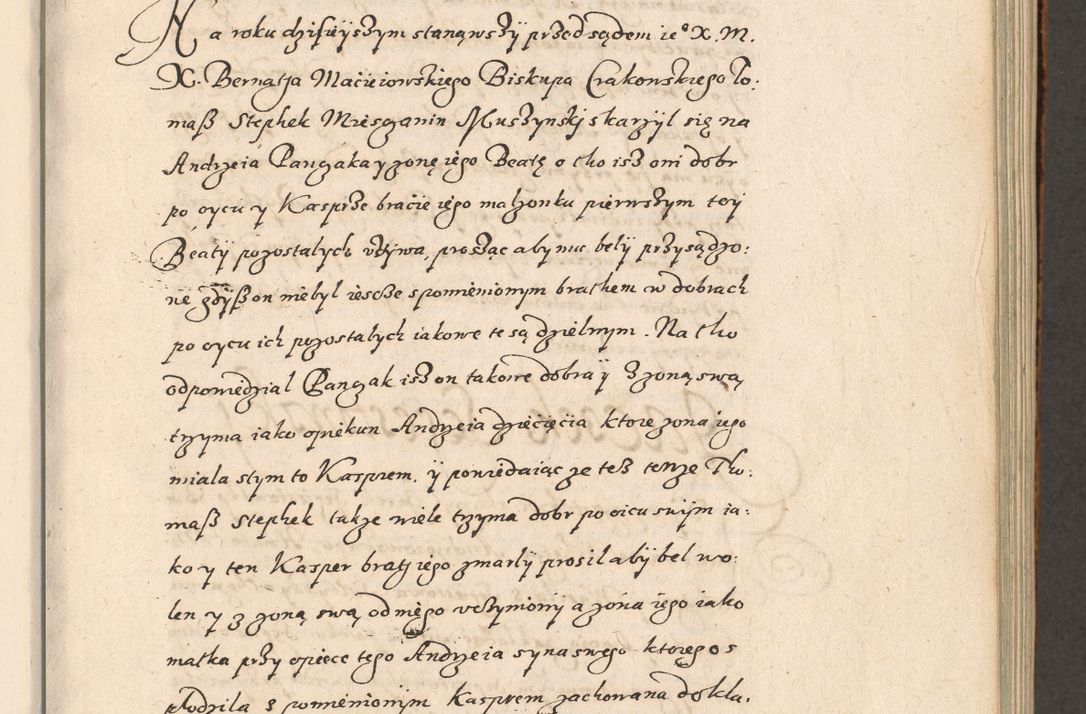 Na roku dzisiyszym stanąwszy przed sądem ie° X. M.
X. Bernatja Macieiowskiego Biskupa Crakowskiego To:
maß Stephek Miesczanin Muszynskj skarzył się na
Andrzeia Pangaka y zonę iego Beatę o tho isz oni dobr
po oycu y Kasprze bracie iego malzonku pierwszym tey
Beaty pozostałych vzywa, prosząc aby mu beły przysądzo:
ne gdyß on niebył iescze spomnienionym brathem w dobrach
po oycu ich pozostałych iakowe te są dzielnym. Na tho
odpowiedział Pangak isz on takowe dobra y z zoną swą
trzyma iako opiekun Andrzeia dziecięcia ktore zona iego
miala s tym to Kasprem, y powiedaiąc ze tesz tenze Tho:
maß Stephek takze wiele trzyma dobr po oicu swijm ia:
ko y ten Kasper bratj iego zmarły prosił aby beł wo:
len y z zoną swą od niego vczyniony a zona iego iako
matka przy opiece tego Andrzeia syna swego ktorego s
płodziła s pomnienionym Kasprem zachowana dokła,